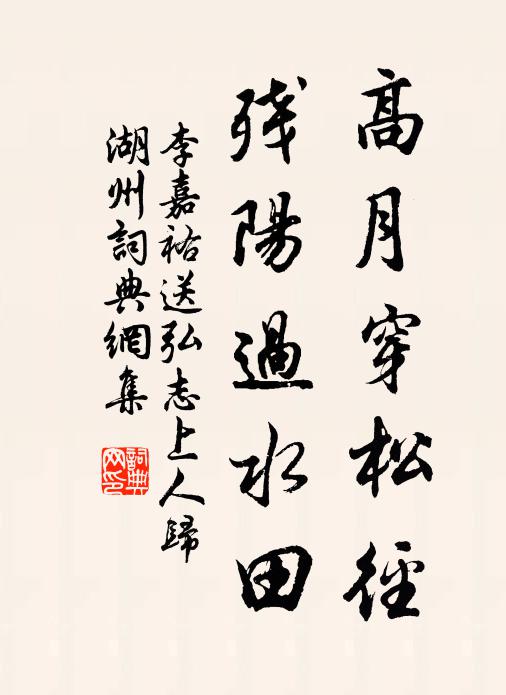 高月穿松徑
残陽過水田
李嘉祐送弘志上人歸
湖州詞典網集
詞典網印